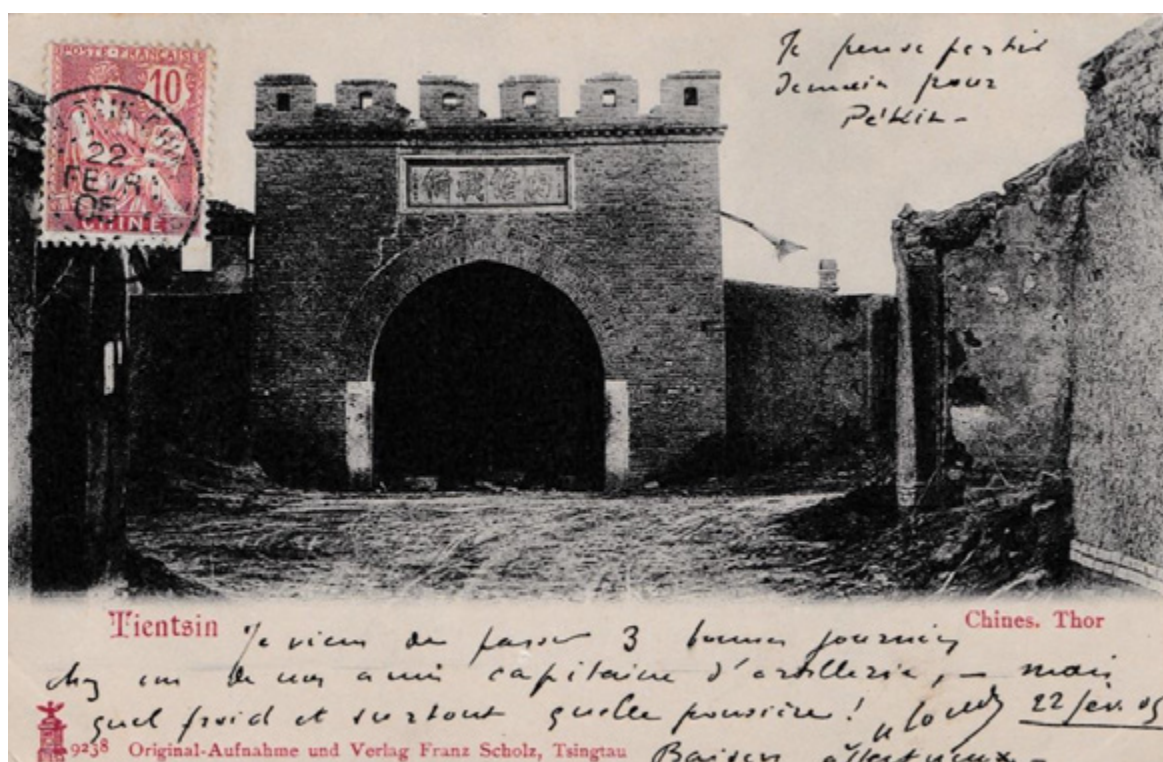 POSTE FRANÇAISE
10
22
FEVR
05
CHINE
Je pense partir
demain pour
Pékin -
Tientsin
Chines. Thor
Je viens de passer 3 bonnes journées
chez un de nos amis capitaine d'artillerie, - mais
quel froid et surtout quelle poussière! 22 fév. 05
Baisers affectueux -
9238 Original-Aufnahme und Verlag Franz Scholz, Tsingtau